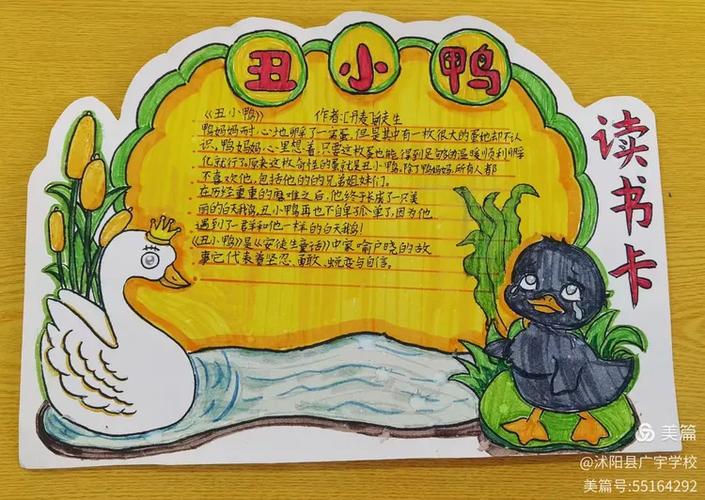 丑小鸭
《丑小鸭》 作者:[丹麦]安徒生
鸭妈妈耐心地孵了一窝蛋,但是其中有一枚很大的蛋他却不认
识,鸭妈妈心里想着,只要这枚蛋也能得到足够的温暖顺利孵
化就行了。原来这枚奇怪的蛋就是丑小鸭,除了鸭妈妈,所有人都
不喜欢他,包括他的的兄弟姐妹们。
在历经重重的磨难之后,他终于长成了一只美
丽的白天鹅,丑小鸭再也不自卑孤单了,因为他
遇到了一群和他一样的白天鹅!
《丑小鸭》是《安徒生童话》中家喻户晓的故
事它代表着坚忍、勇敢、蜕变与自信。
读书卡
美篇
@沭阳县广宇学校
美篇号:55164292